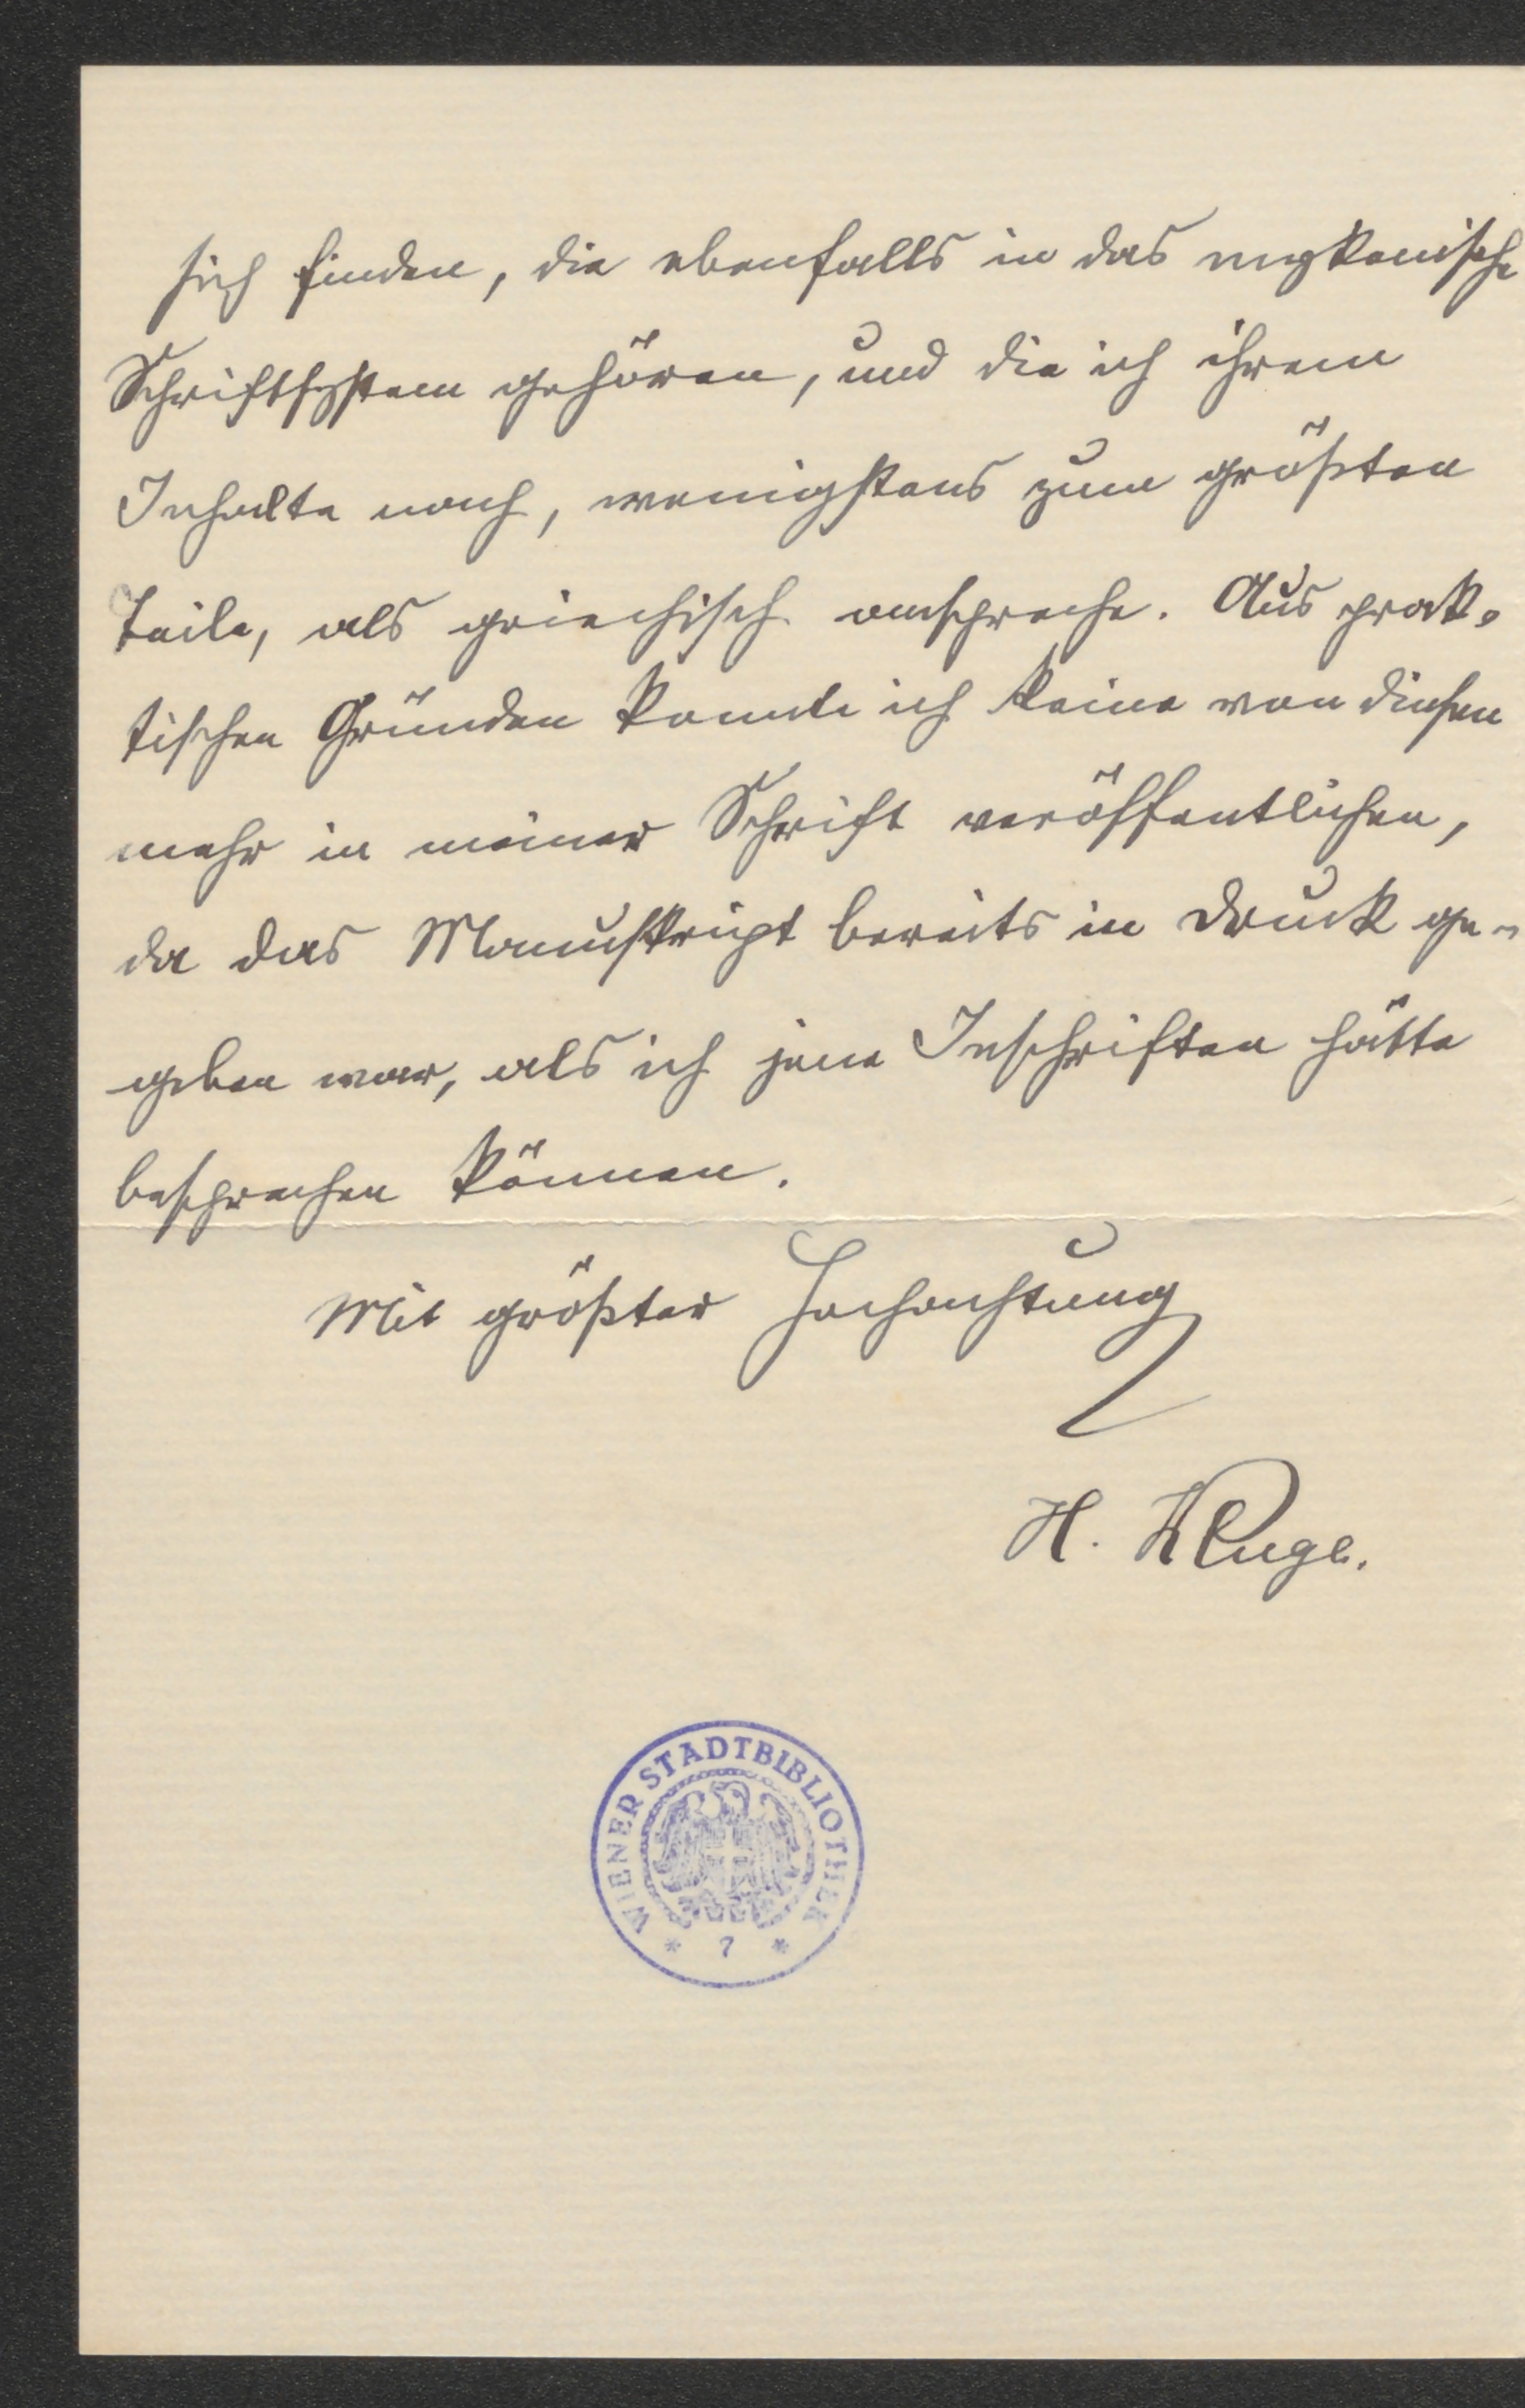 sich finden, die ebenfalls in das mykenische
Schriftsystem gehören, und die ich ihrem
Inhalte nach, wenigstens zum größten
Teile, als griechisch anspreche. Aus prak-
tischen Gründen konnte ich keine von diesen
mehr in meiner Schrift veröffentlichen,
da das Manuskript bereits in Druck ge-
geben war, als ich jene Inschriften hätte
besprechen können.
Mit größter Hochachtung
H. Kluge.
WIENER STADTBIBLIOTHEK
* 7 *